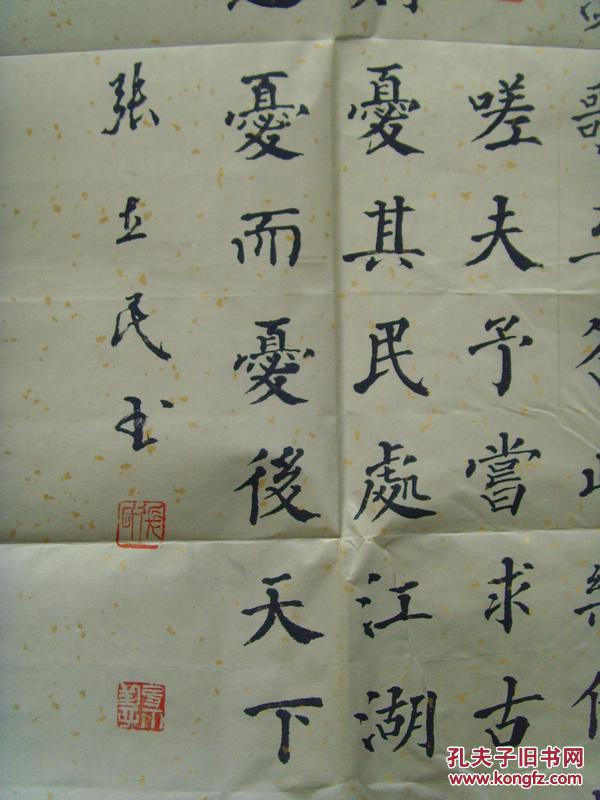 歌互答此樂何
嗟夫予嘗求古
憂其民處江湖
憂而憂後天下
張立民书
孔夫子旧书网
www.kongfz.com